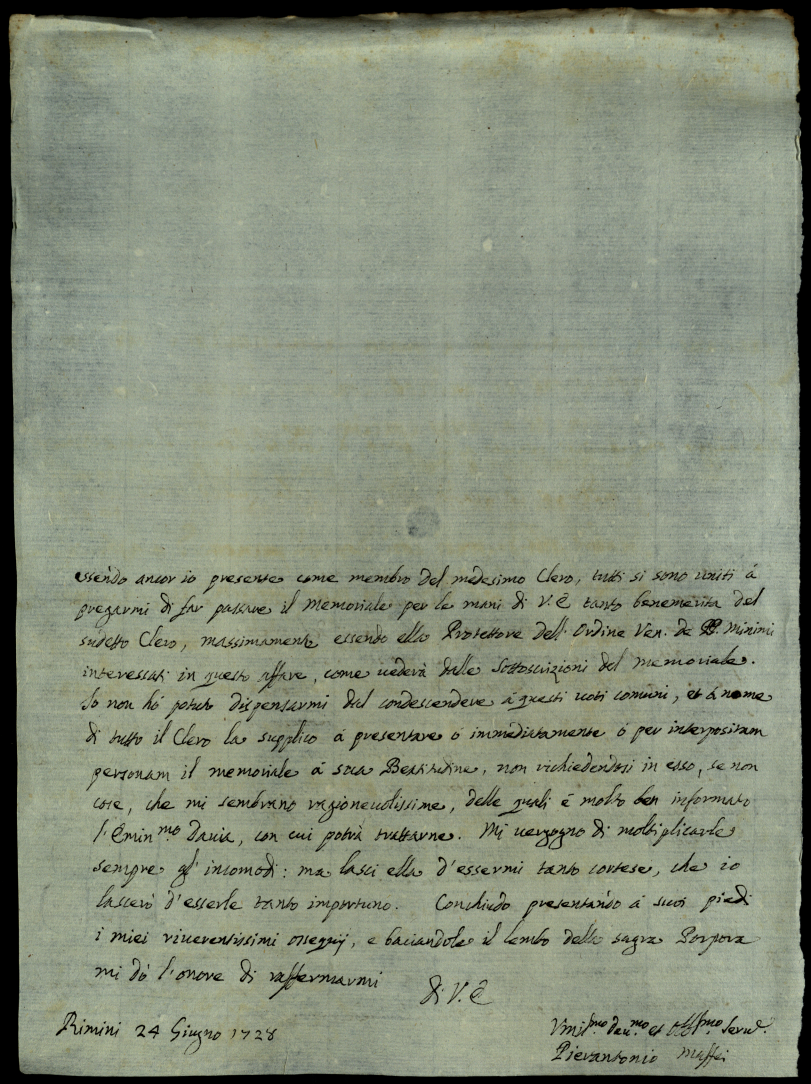 essendo ancor io presente come membro del medesimo Clero, tutti si sono uniti á
pregarmi di far passare il Memoriale per le mani di V. E. tanto benemerita del
sudetto Clero, massimamente essendo ella Protettore dell' Ordine Ven. de PP. Minimi
interessati in questo affare, come uederà dalle Sottoscrizioni del memoriale.
Io non hó potuto dispensarmi dal condescendere á questi uoti comuni, et á nome
di tutto il Clero la supplico á presentare ó immediatamente ó per interpositam
personam il memoriale á sua Beatitudine, non richiedendosi in esso, se non
cose, che mi sembrano ragioneuolissime, delle quali é molto ben informato
l'Emin.mo Dauia, con cui potrà trattarne. Mi uergogno di moltiplicarle
sempre gl' incomodi: ma lasci ella d'essermi tanto cortese, che io
lascerò d'esserle tanto importuno. Conchiudo presentando á suoi piedi
i miei riuerentissimi ossequij, e baciandole il lembo della sagra Porpora
mi dò l'onore di raffermarmi
di V. E.
Rimini 24 Giugno 1728
Vmil.mo deu.mo et obb.mo Seru.
Pierantonio Maffei